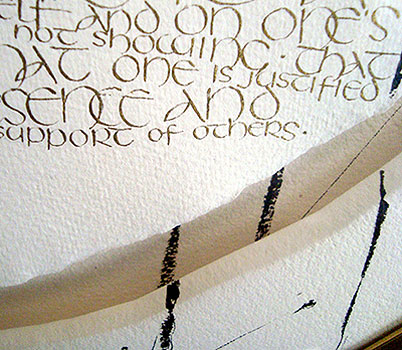 elf and on one's
not showing. that
hat one is justified
sence and
support of others.